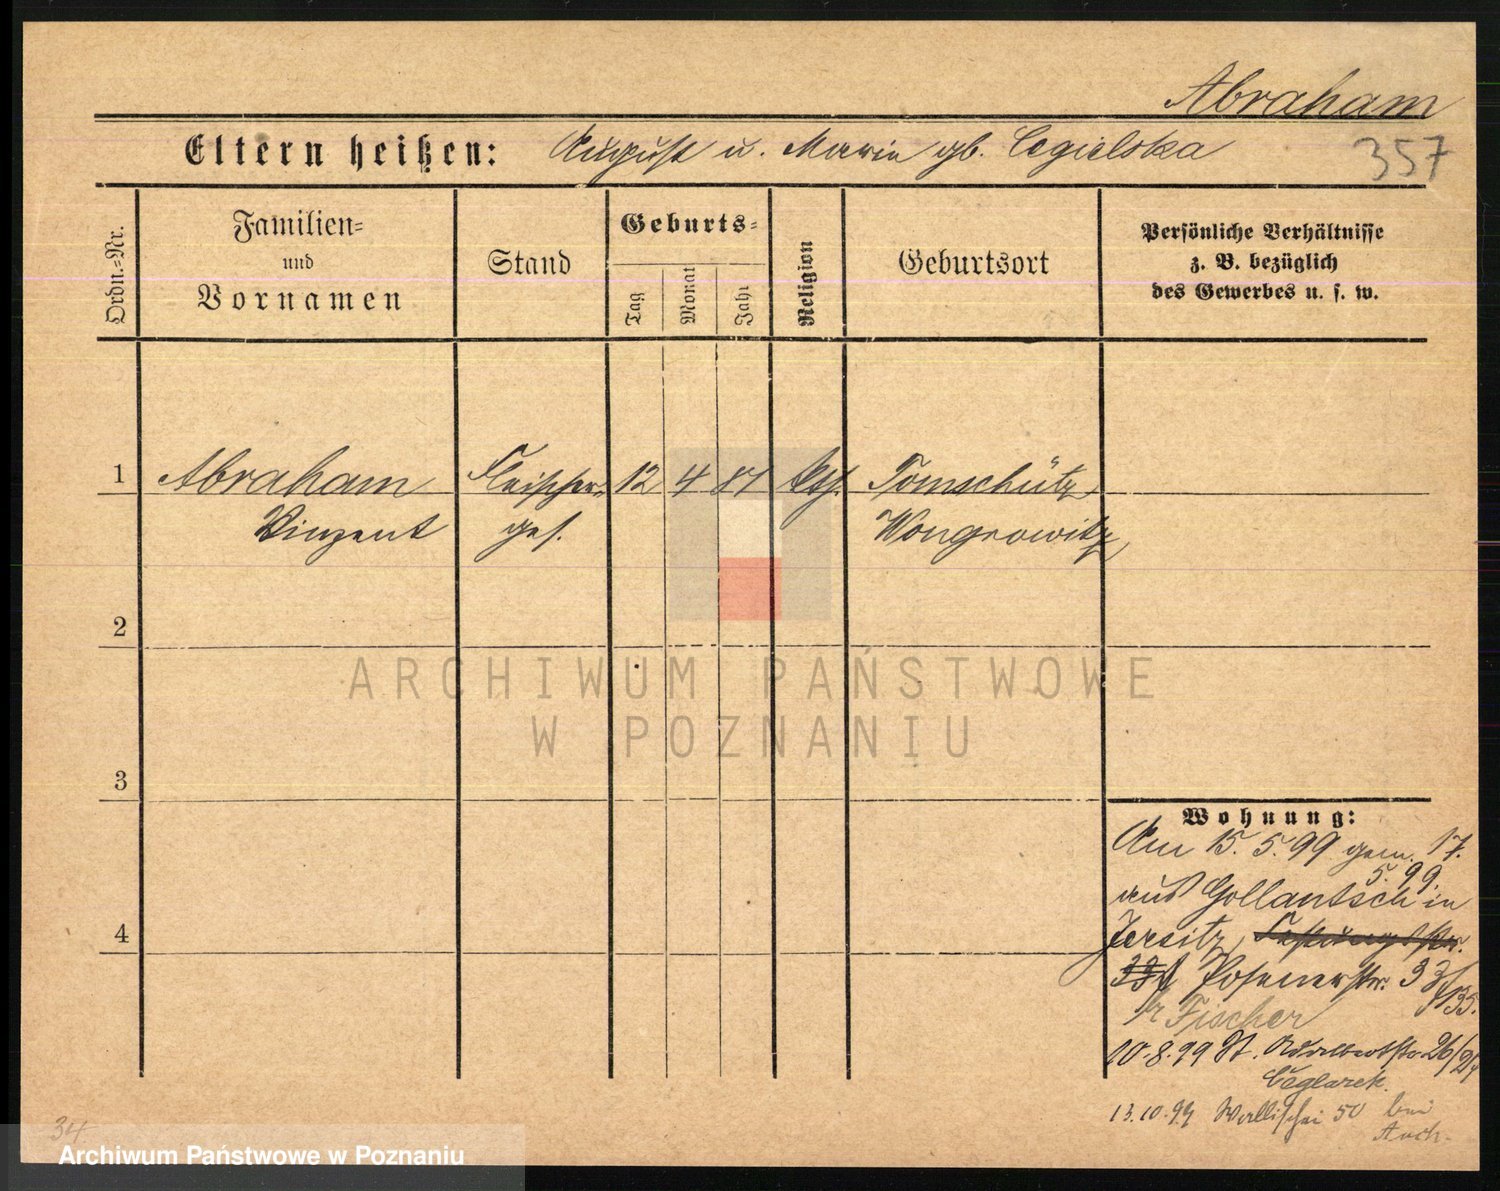 Abraham
Eltern heißen: August u. Marie gb. Cegielska
357
Ordn.-Nr.
Familien=
und
Vornamen
Stand
Geburts=
Tag
Monat
Jahr
Religion
Geburtsort
Persönliche Verhältnisse
z. B. bezüglich
des Gewerbes u. s. w.
1 Abraham Fleischer 12 4 81 kth. Tomschütz
Vinzent ges. Wongrowitz
2
ARCHIWUM PAŃSTWOWE
W POZNANIU
3
Wohnung:
Am 15. 5. 99 gem. 17.
5. 99.
aus Gollantsch in
Jersitz,
Posenerstr. 33
135.
Fischer
10.8.99 St. Adalbertstr. 26/27
Ceglarek.
13.10.99 Wallischei 50 bei
34
Archiwum Państwowe w Poznaniu